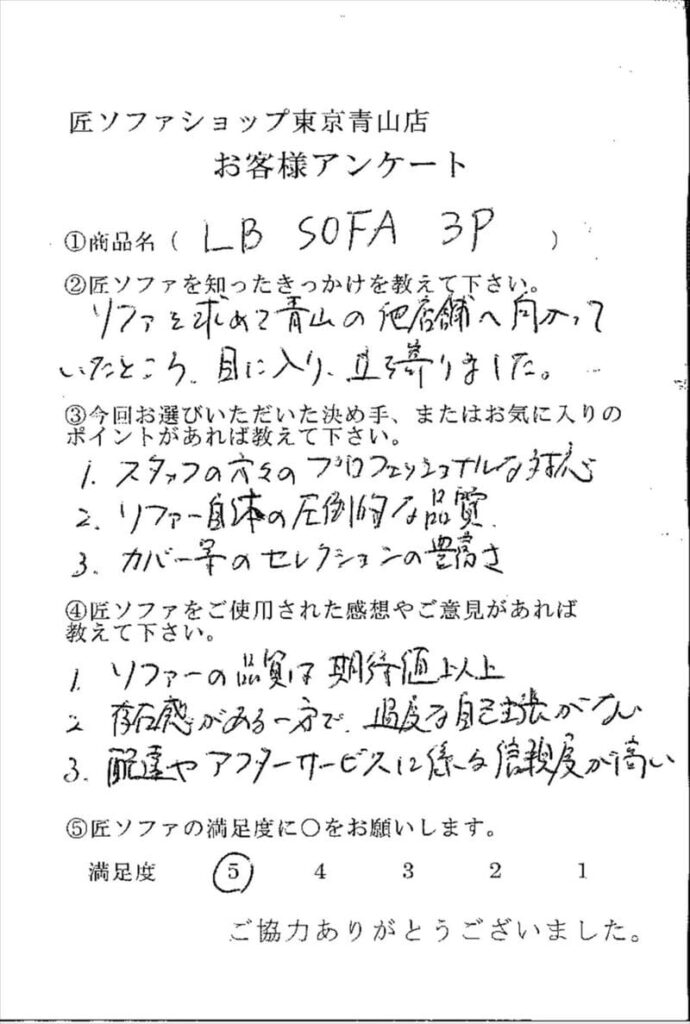 匠ソファショップ東京青山店
お客様アンケート
①商品名( LB SOFA 3P )
②匠ソファを知ったきっかけを教えて下さい。
ソファを求めて青山の他店舗へ向かって
いたところ、目に入り、立ち寄りました。
③今回お選びいただいた決め手、またはお気に入りの
ポイントがあれば教えて下さい。
1. スタッフの方々のプロフェッショナルな対応
2. ソファー自体の圧倒的な品質
3. カバー等のセレクションの豊富さ
④匠ソファをご使用された感想やご意見があれば
教えて下さい。
1. ソファーの品質は期待値以上
2. 存在感がある一方で、過度な自己主張がない
3. 配達やアフターサービスに係る信頼度が高い
⑤匠ソファの満足度に〇をお願いします。
満足度 5 4 3 2 1
ご協力ありがとうございました。